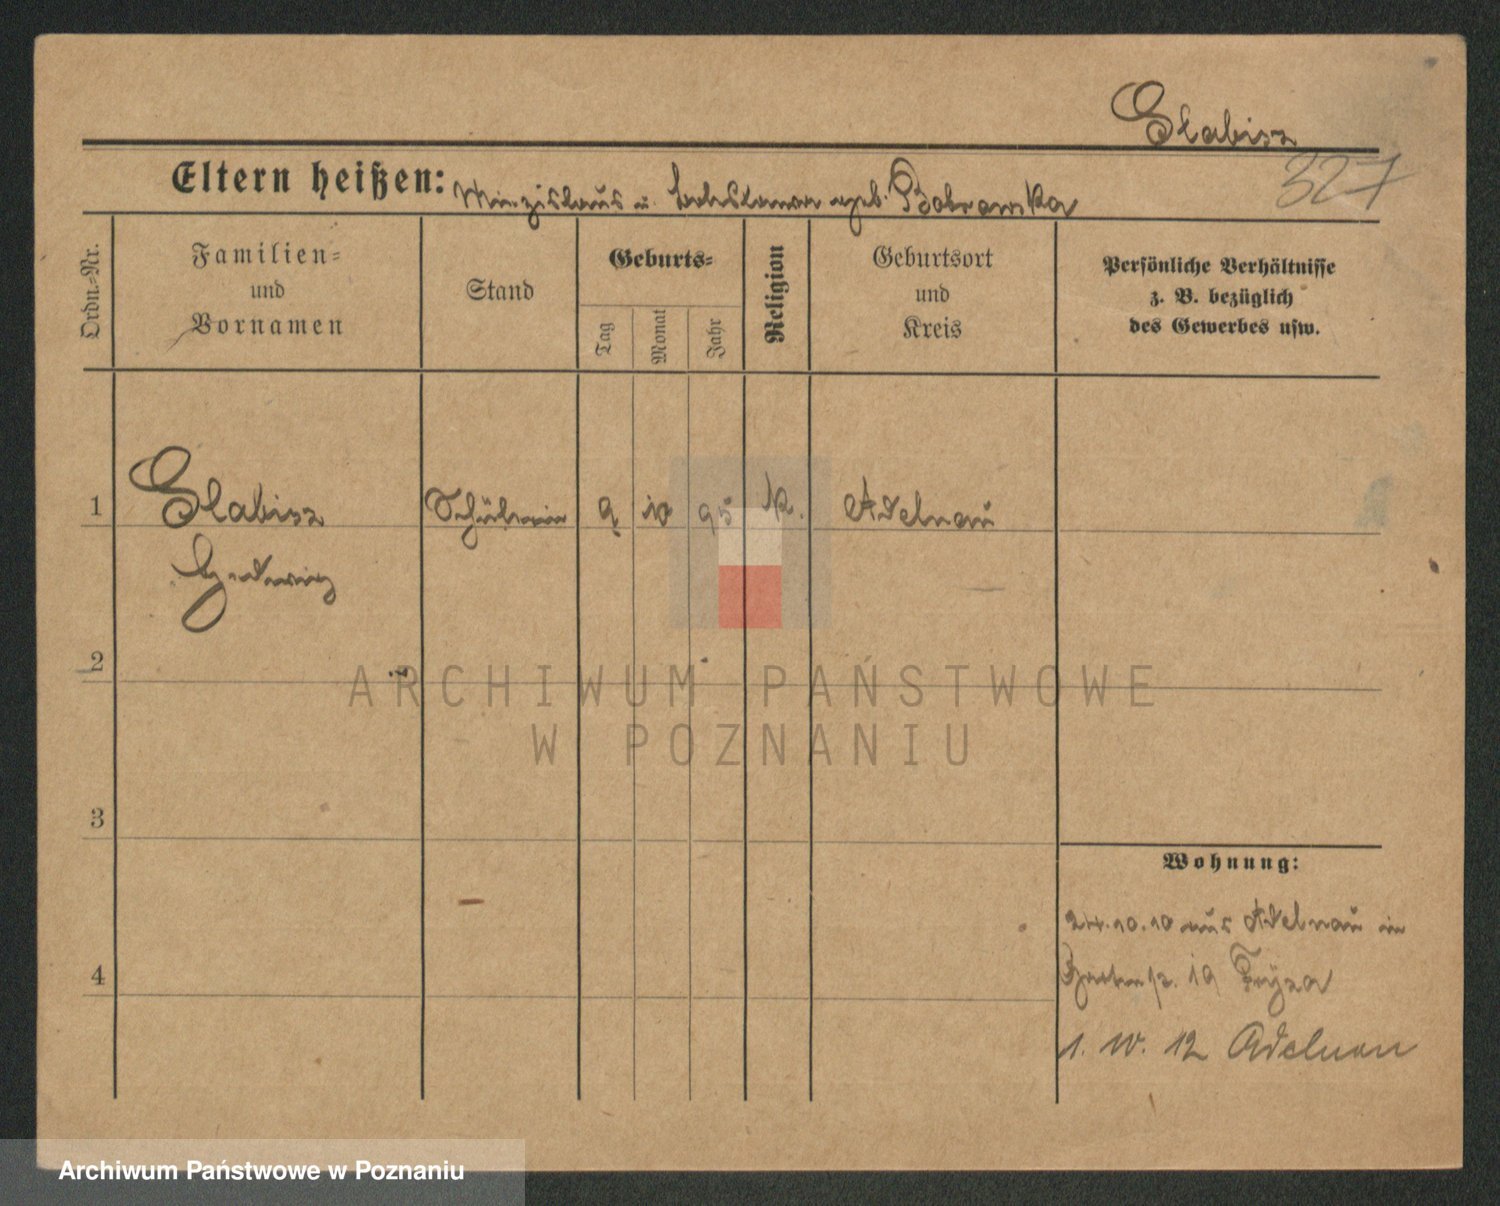 Slabisz
327
Eltern heißen: Miezislaus u. geb. Bobrowska
Ordn.-Nr.
Familien- und Vornamen
Stand
Geburts-
Tag
Monat
Jahr
Religion
Geburtsort und Kreis
Persönliche Verhältnisse
z. B. bezüglich
des Gewerbes usw.
1 Slabisz Schülerin 9 10 95 k. Adelnau
Hedwig
2
ARCHIWUM PAŃSTWOWE
W POZNANIU
3
Wohnung:
24.10.10 aus Adelnau in
Gartenstr. 19
4
1. 12 Adelnau
Archiwum Państwowe w Poznaniu